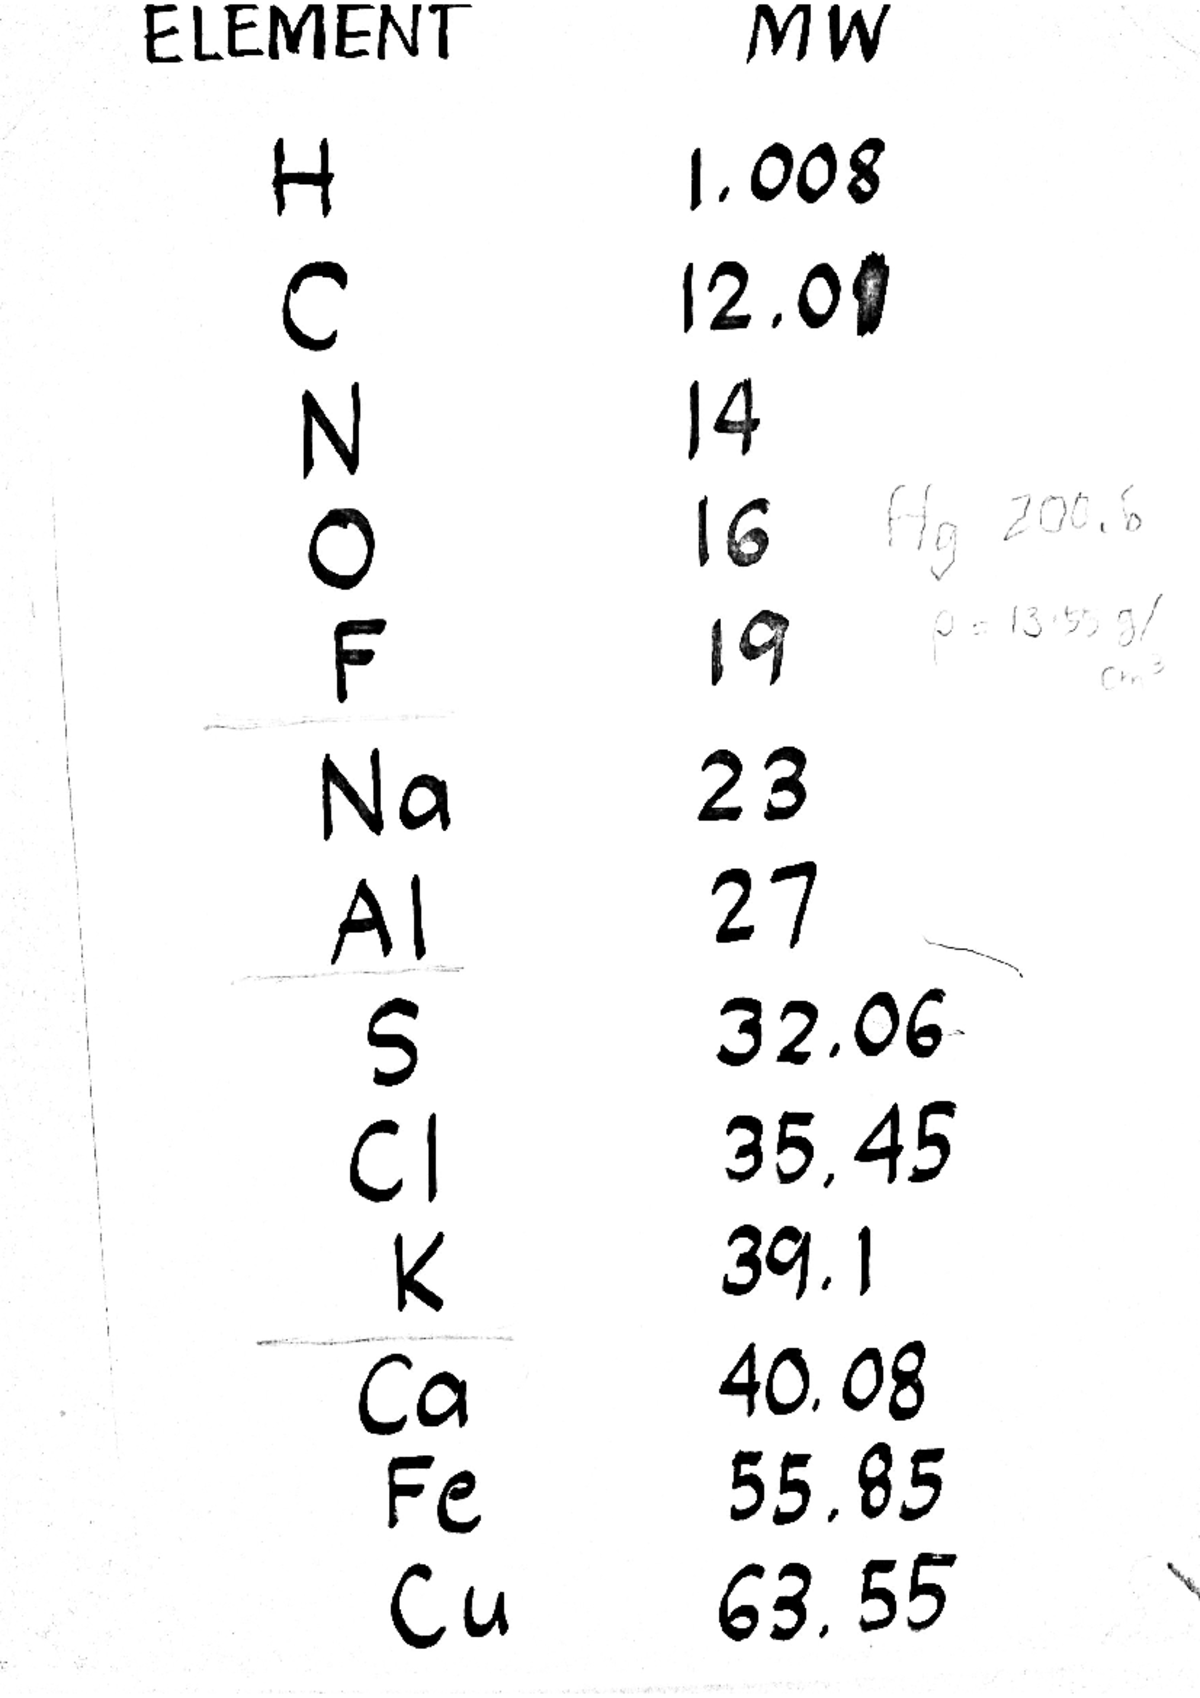 ELEMENT MW
H 1.008
C 12.01
N 14
O 16 Hg 200.6
F 19 ρ = 13.55 g/
cm³
Na 23
Al 27
S 32.06
Cl 35.45
K 39.1
Ca 40.08
Fe 55.85
Cu 63.55